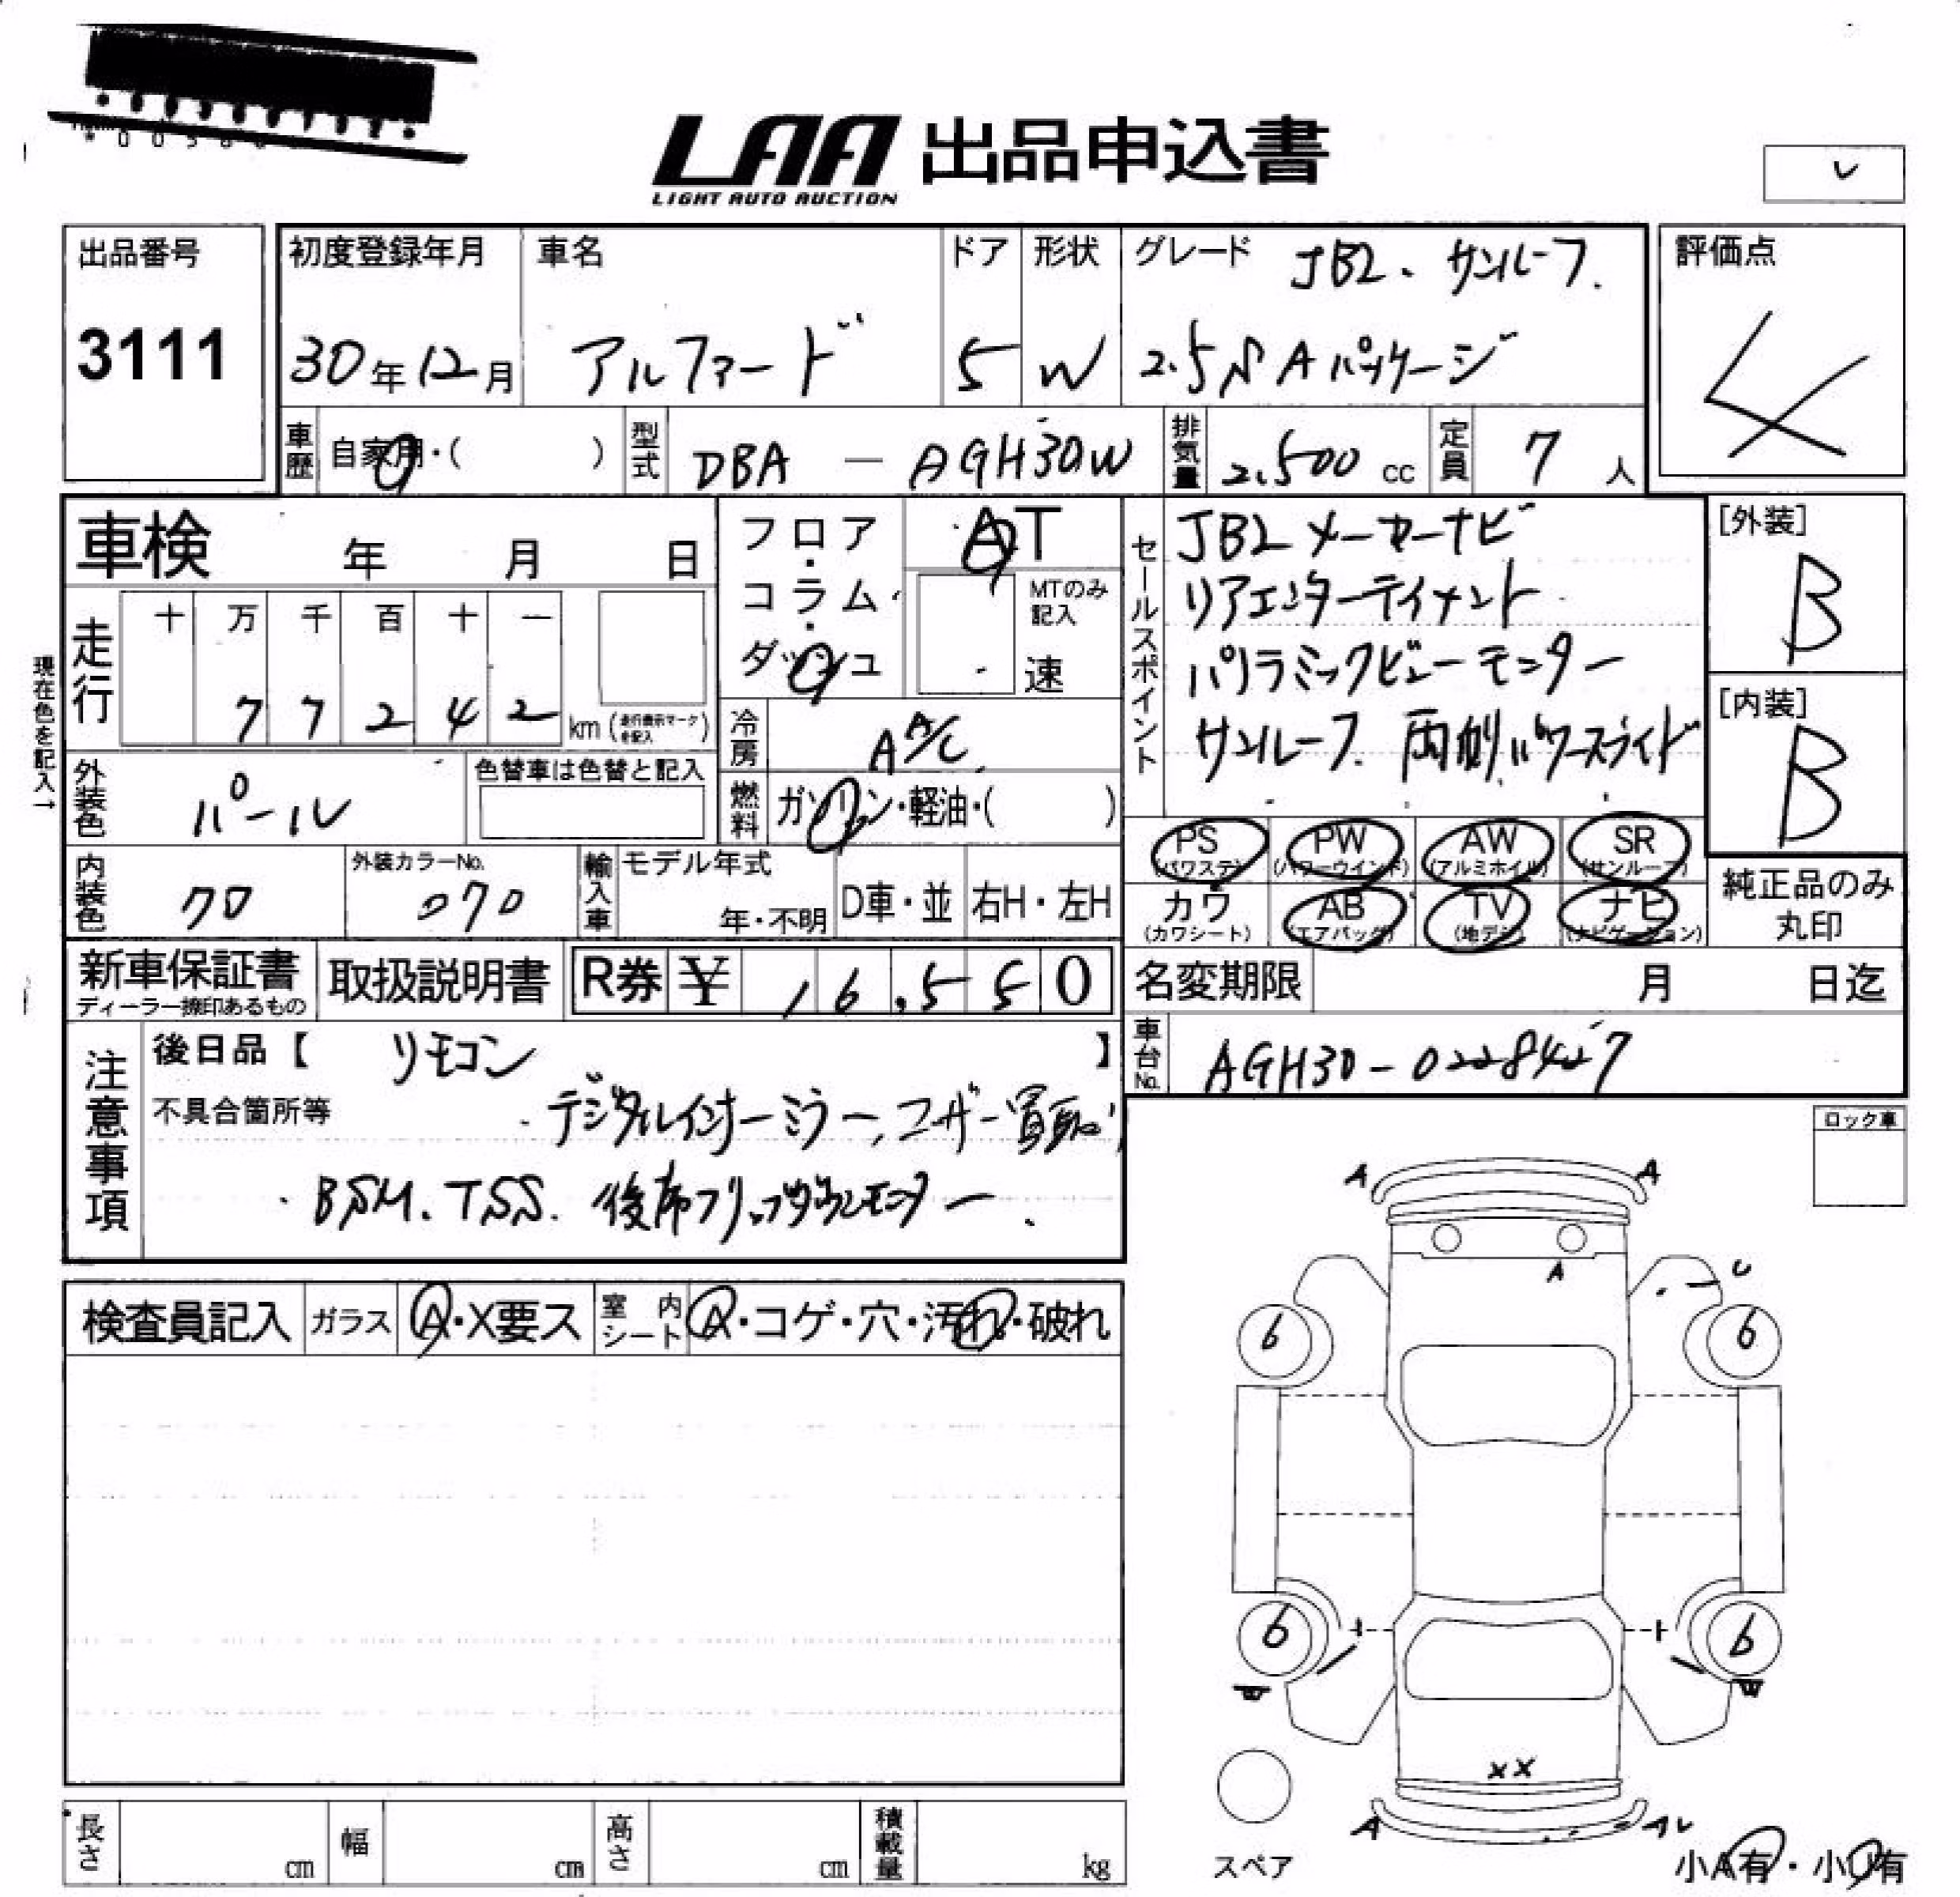 LAA 出品申込書
LIGHT AUTO AUCTION
出品番号
3111
初度登録年月
30年12月
車名
アルファード
ドア
5
形状
W
グレード
JBL.サンルーフ.
2.5S Aパッケージ
評価点
4
車歴
自家用・( )
型式
DBA - AGH30W
排気量
2.500 cc
定員
7 人
車検 年 月 日
フロア・コラム・ダッシュ
AT
MTのみ記入
速
現在色を記入→
走行
十 万 千 百 十 一
7 7 2 4 2 km(走行表示マークを記入)
冷房
AA/C
外装色
パール
色替車は色替と記入
燃料
ガソリン・軽油・( )
内装色
クロ
外装カラーNo.
070
輸入車
モデル年式
年・不明
D車・並
右H・左H
セールスポイント
JBLメーカーナビ
リアエンターテイメント
パノラミックビューモニター
サンルーフ 両側パワースライド
[外装]
B
[内装]
B
PS (パワステ)
PW (パワーウインド)
AW (アルミホイル)
SR (サンルーフ)
カワ (カワシート)
AB (エアバッグ)
TV (地デジ)
ナビ (ナビゲーション)
純正品のみ
丸印
新車保証書
ディーラー捺印あるもの
取扱説明書
R券 ¥ 16,550
名変期限 月 日迄
車台No.
AGH30-0228427
注意事項
後日品【 リモコン 】
不具合箇所等
デジタルインナーミラー、ユーザー買取
BSM.TSS.後席フリップダウンモニター.
ロック車
検査員記入
ガラス
A・X要ス
室内シート
A・コゲ・穴・汚れ・破れ
A A
A
U
6 6
6 6
W W
XX
A AU
スペア
小A有・小U有
長さ cm
幅 cm
高さ cm
積載量 kg